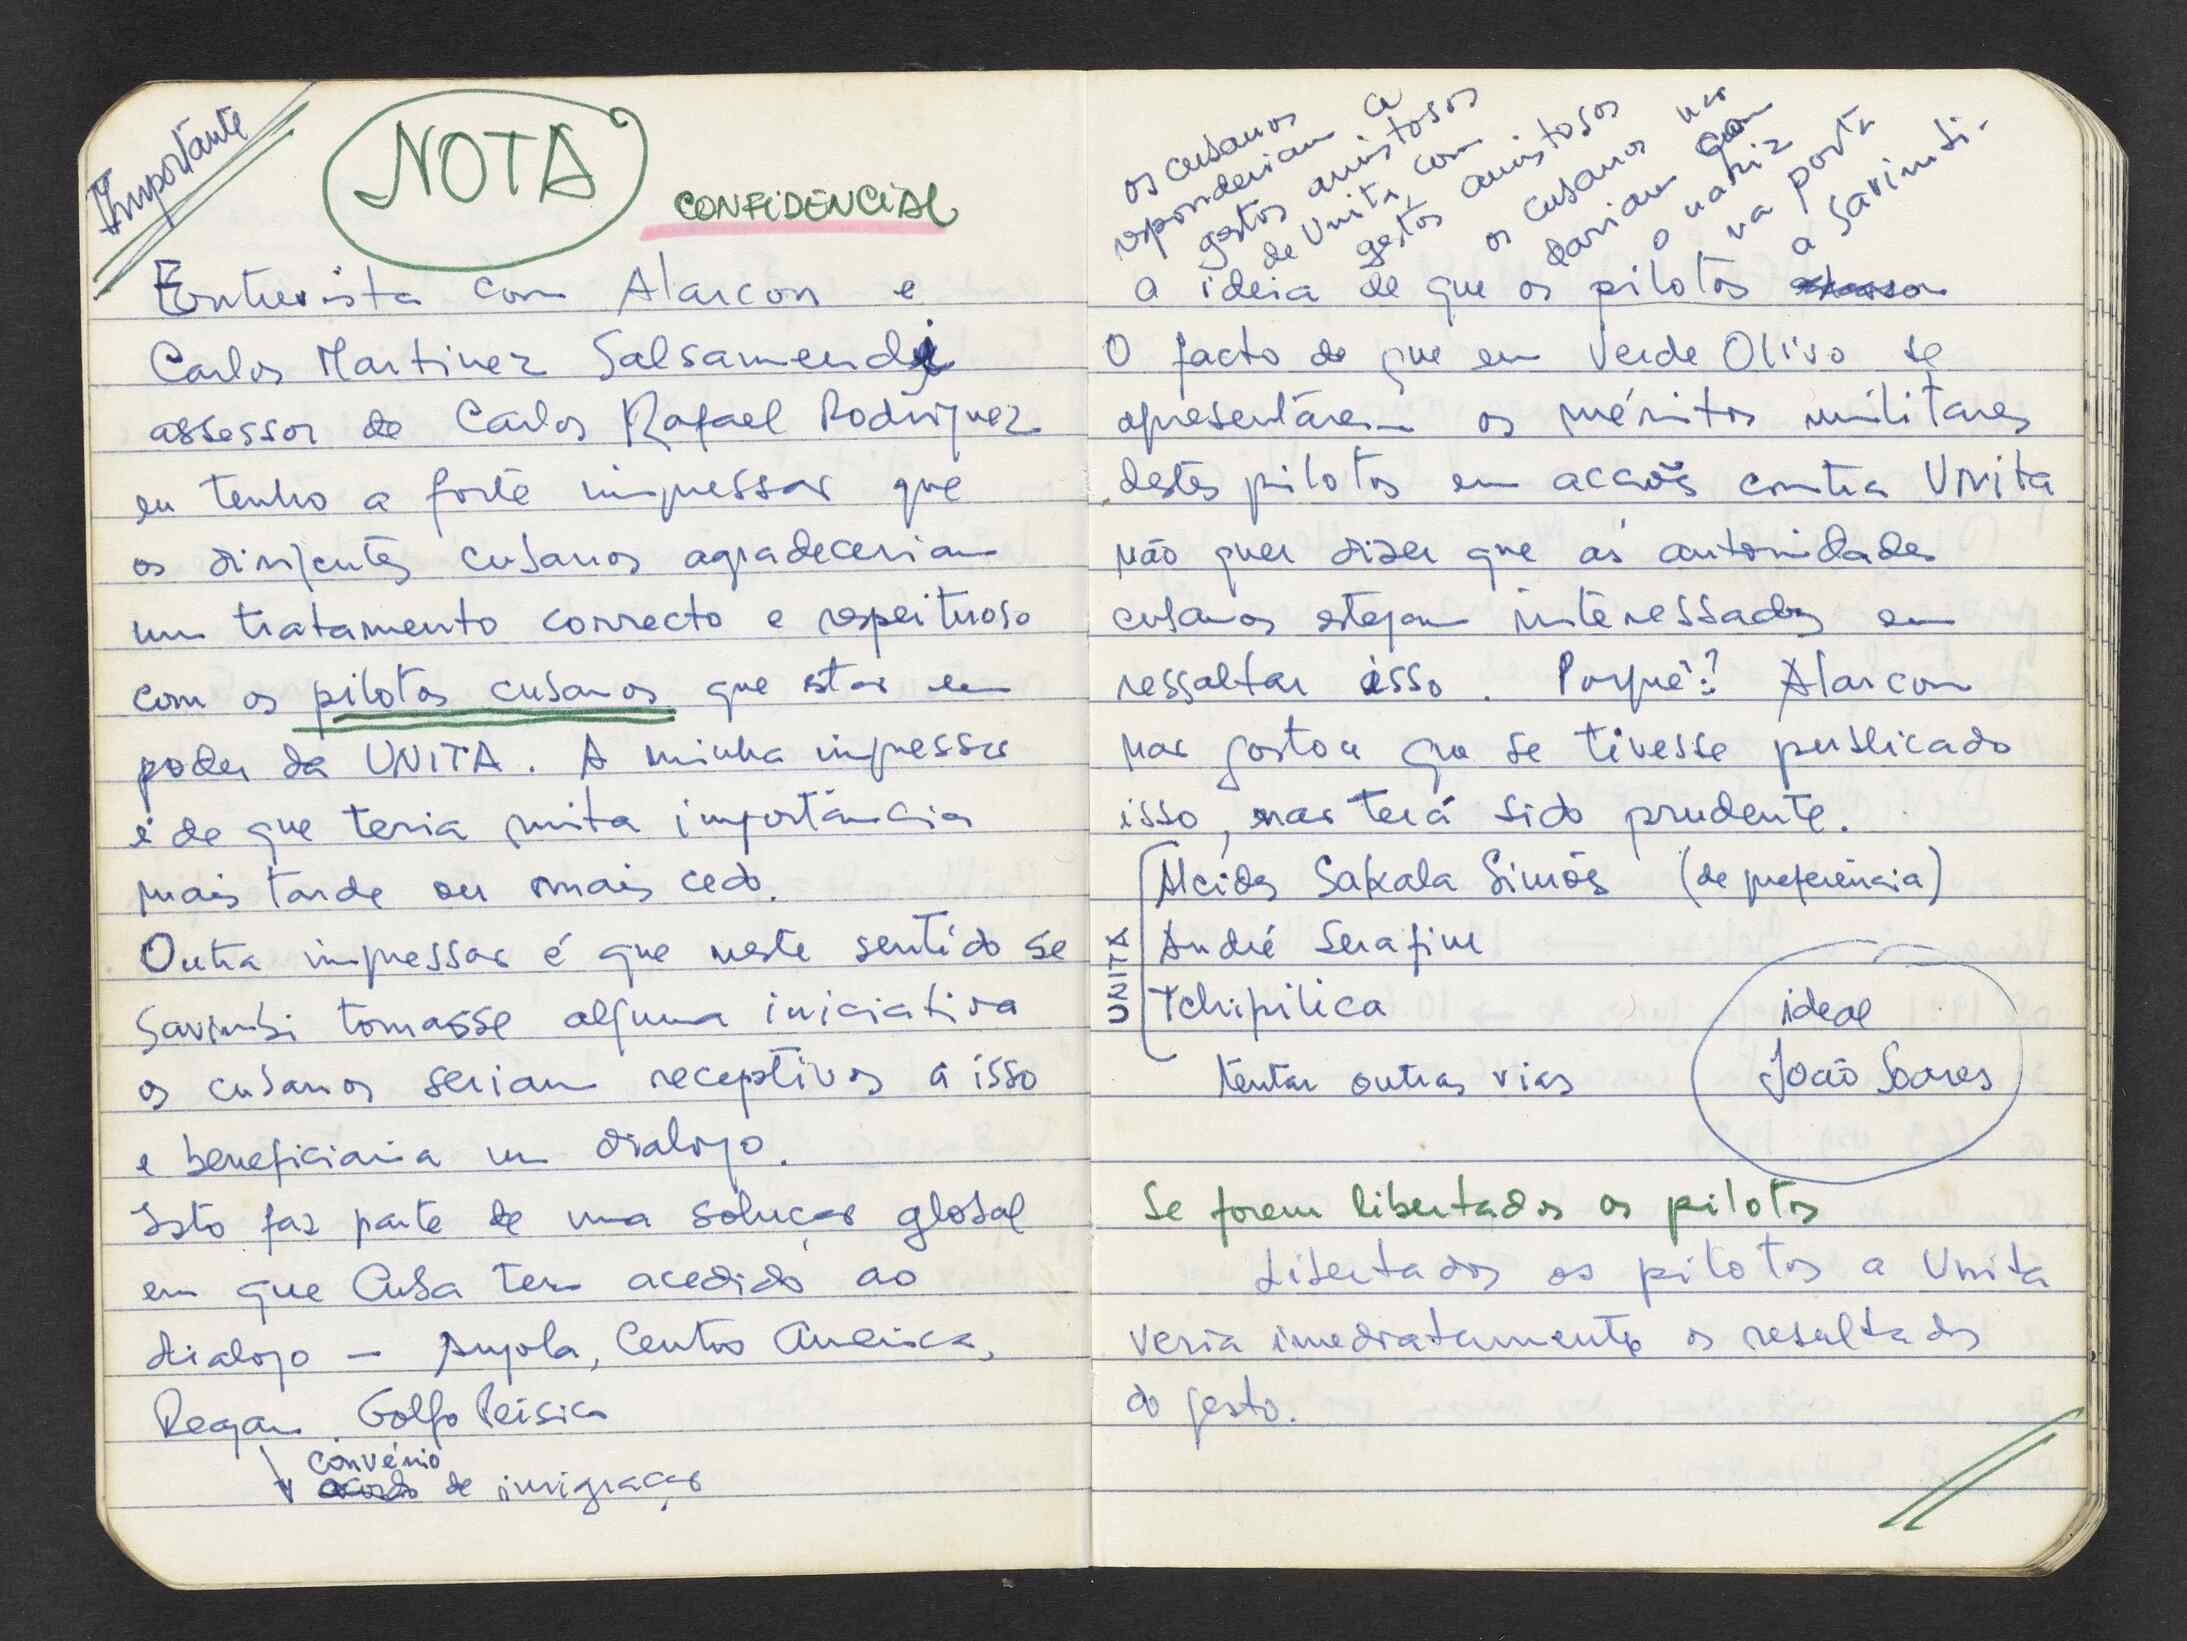 Importante
NOTA
CONFIDENCIAL
Entrevista com Alarcon e
Carlos Martinez Salsamendi
assessor de Carlos Rafael Rodriguez
eu tenho a forte impressão que
os dirigentes cubanos agradeceriam
um tratamento correcto e respeituoso
com os pilotos cubanos que estão em
poder da UNITA. A minha impressão
é de que teria muita importância
mais tarde ou mais cedo.
Outra impressão é que neste sentido se
Savimbi tomasse alguma iniciativa
os cubanos seriam receptivos a isso
e beneficiaria um dialogo.
Isto faz parte de uma solução global
em que Cuba tem acedido ao
dialogo – Angola, Centro America,
Regan Golfo Pérsico
convénio
acordo de imigração
os cubanos
responderiam a
gestos amistosos
de Unita, com
gestos amistosos
os cubanos não
dariam com
o nariz
na porta
a Savimbi.
a ideia de que os pilotos
O facto de que em Verde Olivo se
apresentárem os méritos militares
destes pilotos em acções contra Unita
não quer dizer que as autoridades
cubanas estejam interessados em
ressaltar isso. Porquê? Alarcon
não gostou que se tivesse publicado
isso, não terá sido prudente.
UNITA
Alcides Sakala Simões (de preferência)
André Serafim
Tchipilica
tentar outras vias
ideal
João Soares
Se forem libertados os pilotos
Libertados os pilotos a Unita
veria imediatamente os resultados
do gesto.